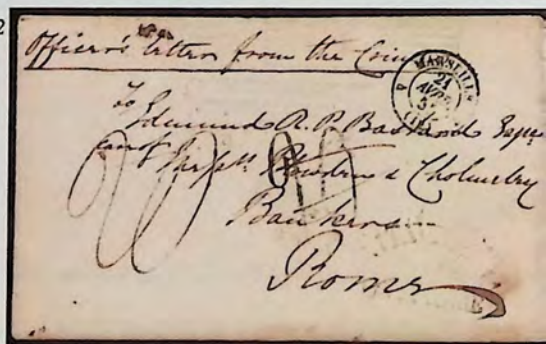 2
Officer's letter from the Crim
MARSEILLE
21
AVRIL
To Edmund R. P. Bastard Esqre
Messrs Plowden & Cholmeley
Bankers
Rome